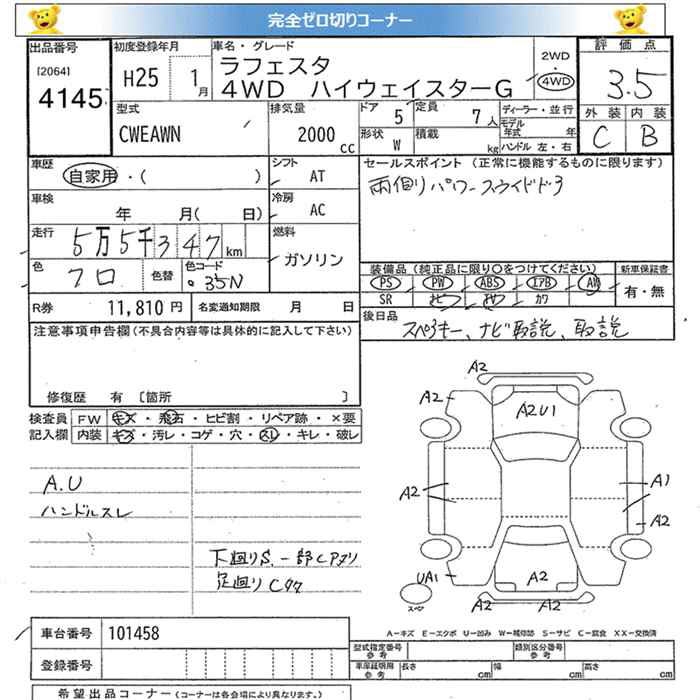 完全ゼロ切りコーナー
出品番号
[2064]
4145
初度登録年月
H25 1月
車名・グレード
ラフェスタ
4WD ハイウェイスターG
2WD
・
4WD
評価点
3.5
外装 内装
C B
型式
CWEAWN
排気量
2000 cc
ドア 5
定員 7人
ディーラー・並行
モデル年式 年
形状 W
積載 kg
ハンドル 左・右
車歴
自家用・( )
シフト
AT
車検
年 月( 日)
冷房
AC
走行
5万5千347km
燃料
ガソリン
色
クロ
色替
色コード
35N
R券 11,810円
名変通知期限 月 日
セールスポイント (正常に機能するものに限ります)
両側パワースライドドア
装備品(純正品に限り○をつけてください)
PS PW ABS IアB AW
SR ナビ TV カワ
新車保証書
有・無
後日品
スペアキー、ナビ取説、取説
注意事項申告欄(不具合内容等は具体的に記入して下さい)
修復歴 有 [箇所 ]
検査員
記入欄
FW キズ・飛石・ヒビ割・リペア跡・×要
内装 キズ・汚レ・コゲ・穴・スレ・キレ・破レ
A.U
ハンドルスレ
下廻りS.一部Cアリ
足廻りC
A2
A2
A2U1
A2
A1
A2
UA1
A2
A2
A2
スペア
A-キズ E-エクボ U-凹み W-補修跡 S-サビ C-腐食 XX-交換済
車台番号 101458
登録番号
型式指定番号
参考
類別区分番号
参考
車庫証明用
参考
長さ cm
幅 cm
高さ cm
希望出品コーナー (コーナーは各会場により異なります。)